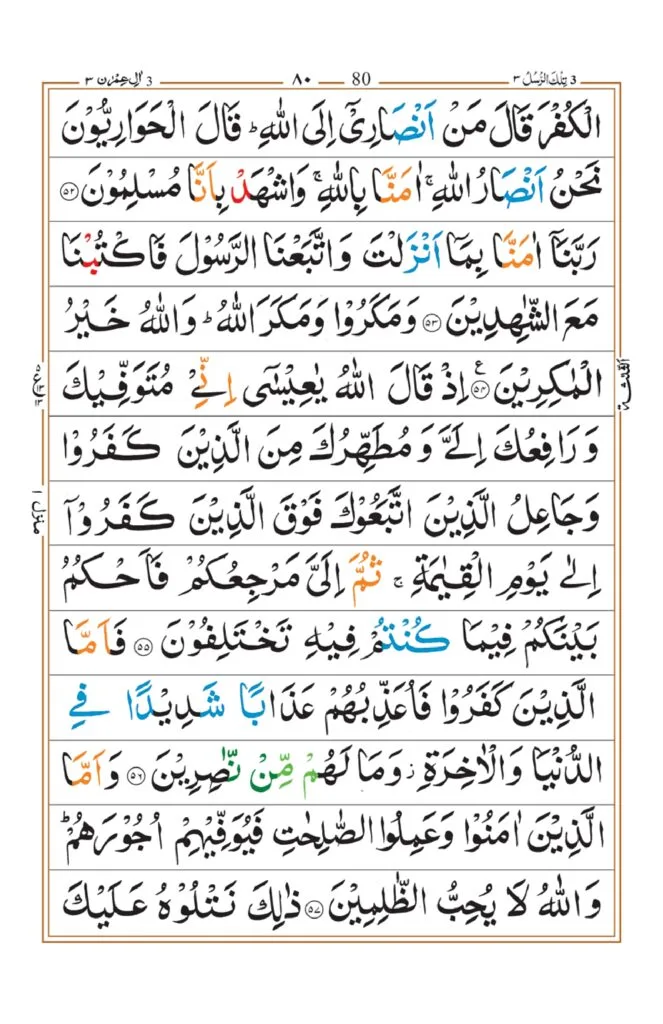 3 تِلْكَ الرُّسُلُ ٣
80 ٨٠
3 اٰلِ عِمْرٰن ٣
الْكُفْرَ قَالَ مَنْ اَنْصَارِیْۤ اِلَی اللّٰهِ ؕ قَالَ الْحَوَارِیُّوْنَ
نَحْنُ اَنْصَارُ اللّٰهِ ۚ اٰمَنَّا بِاللّٰهِ ۚ وَاشْهَدْ بِاَنَّا مُسْلِمُوْنَ ۝۵۲
رَبَّنَاۤ اٰمَنَّا بِمَاۤ اَنْزَلْتَ وَاتَّبَعْنَا الرَّسُوْلَ فَاكْتُبْنَا
مَعَ الشّٰهِدِیْنَ ۝۵۳ وَمَكَرُوْا وَمَكَرَ اللّٰهُ ؕ وَاللّٰهُ خَیْرُ
الْمٰكِرِیْنَ ۝۵۴ ع اِذْ قَالَ اللّٰهُ یٰعِیْسٰۤی اِنِّیْ مُتَوَفِّیْكَ
وَرَافِعُكَ اِلَیَّ وَمُطَهِّرُكَ مِنَ الَّذِیْنَ كَفَرُوْا
وَجَاعِلُ الَّذِیْنَ اتَّبَعُوْكَ فَوْقَ الَّذِیْنَ كَفَرُوْۤا
اِلٰی یَوْمِ الْقِیٰمَةِ ۚ ثُمَّ اِلَیَّ مَرْجِعُكُمْ فَاَحْكُمُ
بَیْنَكُمْ فِیْمَا كُنْتُمْ فِیْهِ تَخْتَلِفُوْنَ ۝۵۵ فَاَمَّا
الَّذِیْنَ كَفَرُوْا فَاُعَذِّبُهُمْ عَذَابًا شَدِیْدًا فِی
الدُّنْیَا وَالْاٰخِرَةِ ؗ وَمَا لَهُمْ مِّنْ نّٰصِرِیْنَ ۝۵۶ وَاَمَّا
الَّذِیْنَ اٰمَنُوْا وَعَمِلُوا الصّٰلِحٰتِ فَیُوَفِّیْهِمْ اُجُوْرَهُمْ ؕ
وَاللّٰهُ لَا یُحِبُّ الظّٰلِمِیْنَ ۝۵۷ ذٰلِكَ نَتْلُوْهُ عَلَیْكَ
الثلثة
منزل ۱